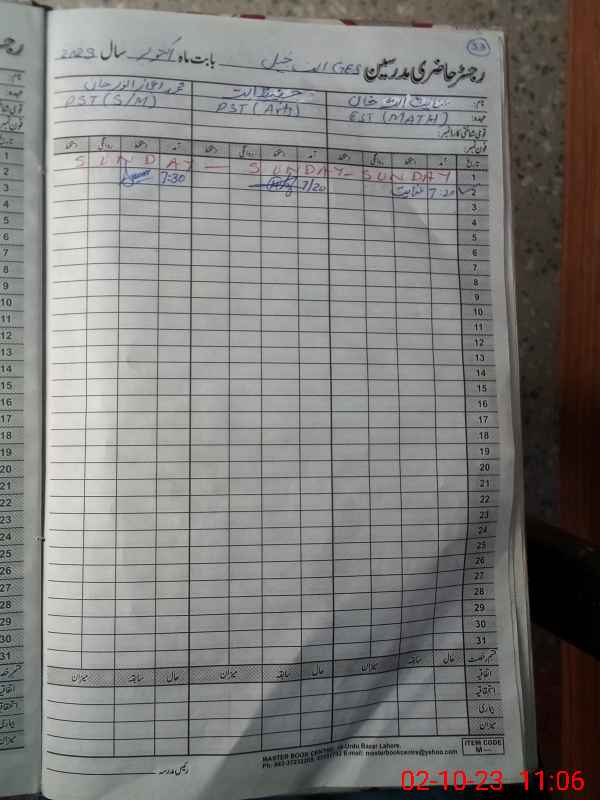 33
رجسٹر حاضری مدرسین GES الف خیل بابت ماہ اکتوبر سال 2023
نام: عنایت اللہ خان حفیظ اللہ
عہدہ: EST (MATH) PST (Arb) PST (S/M)
قومی شناختی کارڈ نمبر:
فون نمبر:
تاریخ آمد دستخط روانگی دستخط آمد دستخط روانگی دستخط آمد دستخط روانگی دستخط
1 SUNDAY — SUNDAY — SUNDAY
2 7:20 عنایت 7/20 7:30
3
4
5
6
7
8
9
10
11
12
13
14
15
16
17
18
19
20
21
22
23
24
25
26
27
28
29
30
31
قسم رخصت حال سابقہ میزان حال سابقہ میزان حال سابقہ میزان
اتفاقیہ
استحقاقیہ
بیماری
میزان
ITEM CODE
M
MASTER BOOK CENTRE, Urdu Bazar Lahore.
E-mail: masterbookcentre@yahoo.com
رئیس مدرسہ
02-10-23 11:06